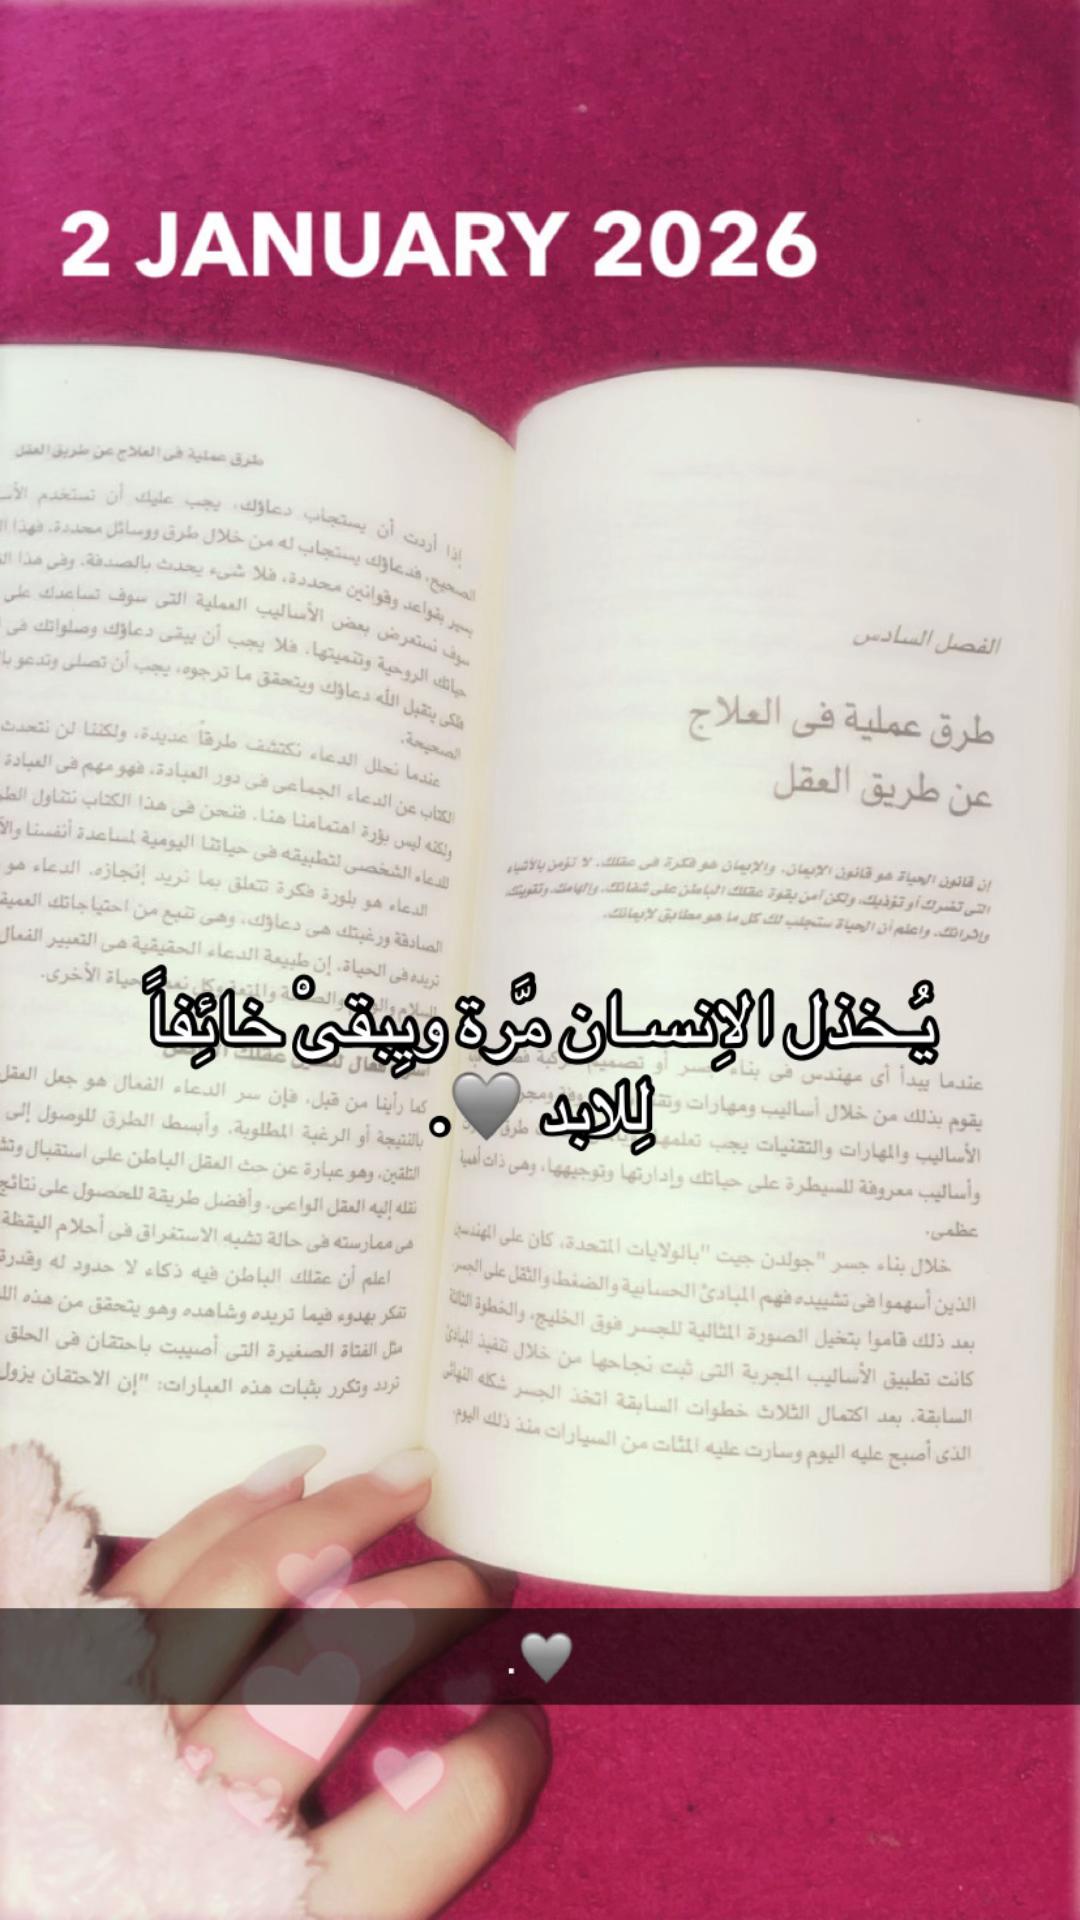 2 JANUARY 2026
طرق عملية فى العلاج عن طريق العقل
إذا أردت أن يستجاب دعاؤك، يجب عليك أن تستخدم
الصحيح، فدعاؤك يستجاب له من خلال طرق ووسائل محددة. فهذا
يسير بقواعد وقوانين محددة، فلا شىء يحدث بالصدفة. وفى هذا
سوف نستعرض بعض الأساليب العملية التى سوف تساعدك على
حياتك الروحية وتنميتها. فلا يجب أن يبقى دعاؤك وصلواتك فى
فلكى يتقبل الله دعاؤك ويتحقق ما ترجوه، يجب أن تصلى وتدعو
الصحيحة.
عندما نحلل الدعاء نكتشف طرقاً عديدة، ولكننا لن نتحدث
الكتاب عن الدعاء الجماعى فى دور العبادة، فهو مهم فى العبادة
ولكنه ليس بؤرة اهتمامنا هنا. فنحن فى هذا الكتاب نتناول
للدعاء الشخصى لتطبيقه فى حياتنا اليومية لمساعدة أنفسنا
الدعاء هو بلورة فكرة تتعلق بما نريد إنجازه. الدعاء هو
الصادقة ورغبتك هى دعاؤك، وهى تنبع من احتياجاتك العميقة
تريده فى الحياة. إن طبيعة الدعاء الحقيقية هى التعبير الفعال
السلام والصحة والمتعة وكل الحياة الأخرى.
فعال عقلك
كما رأينا من قبل، فإن سر الدعاء الفعال هو جعل العقل
بالنتيجة أو الرغبة المطلوبة. وأبسط الطرق للوصول إلى
التلقين، وهو عبارة عن حث العقل الباطن على استقبال
نقله إليه العقل الواعى. وأفضل طريقة للحصول على نتائج
هى ممارسته فى حالة تشبه الاستغراق فى أحلام اليقظة
اعلم أن عقلك الباطن فيه ذكاء لا حدود له وقدرة
تفكر بهدوء فيما تريده وشاهده وهو يتحقق من هذه
مثل الفتاة الصغيرة التى أصيبت باحتقان فى الحلق
تردد وتكرر بثبات هذه العبارات: "إن الاحتقان يزول
الفصل السادس
طرق عملية فى العلاج
عن طريق العقل
إن قانون الحياة هو قانون الإيمان. والإيمان هو فكرة فى عقلك. لا تؤمن بالأشياء
التى تضرك أو تؤذيك، ولكن آمن بقوة عقلك الباطن على شفائك، وإلهامك، وتقويتك،
وإثرائك. واعلم أن الحياة ستجلب لك كل ما هو مطابق لإيمانك.
يُـخذل الاِنسـان مرَّة ويِبقىْ خائِفاً
لِلابد 🩶 .
عندما يبدأ أى مهندس فى بناء جسر أو تصميم
يقوم بذلك من خلال أساليب ومهارات
الأساليب والمهارات والتقنيات يجب تعلمها طرق
وأساليب معروفة للسيطرة على حياتك وإدارتها وتوجيهها، وهى ذات أهمية
عظمى.
خلال بناء جسر "جولدن جيت "بالولايات المتحدة، كان على المهندسين
الذين أسهموا فى تشييده فهم المبادئ الحسابية والضغط والثقل على الجسر.
بعد ذلك قاموا بتخيل الصورة المثالية للجسر فوق الخليج، والخطوة الثالثة
كانت تطبيق الأساليب المجربة التى ثبت نجاحها من خلال تنفيذ المبادئ
السابقة. بعد اكتمال الثلاث خطوات السابقة اتخذ الجسر شكله النهائى
الذى أصبح عليه اليوم وسارت عليه المئات من السيارات منذ ذلك اليوم.
🩶.